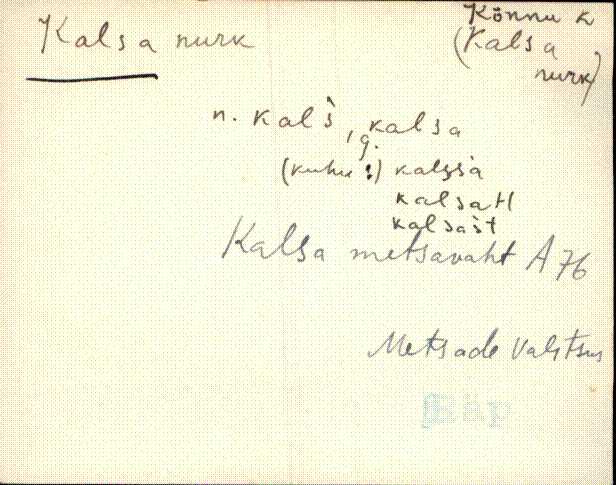 Kalsa nurk
Könnu k
(Kalsa
nurk)
n. Kalš, g. Kalsa
(kuhu:) kalssa
kalsatl
kalsast
Kalsa metsavaht A 76
Metsade Valitsus
Räp